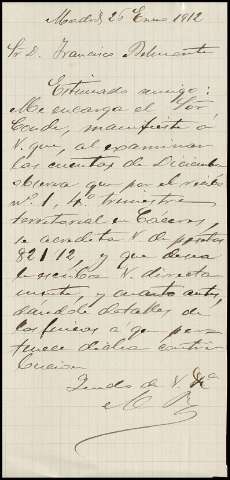 Madrid, 26 Enero 1912
Sr. D. Francisco Belmonte
Estimado amigo:
Me encarga el Sor
Conde, manifieste á
V. que, al examinar
las cuentas de Diciembre
observa que por el recibo
nº. 1, 4º. trimestre
territorial en Cáceres,
se acredita V. de pesetas
821 12, y que desea
le escriba V. directa
mente, y cuanto antes,
dándole detalles de
las fincas a que perte
nece dicha contri
bucion.
Quedo de V.